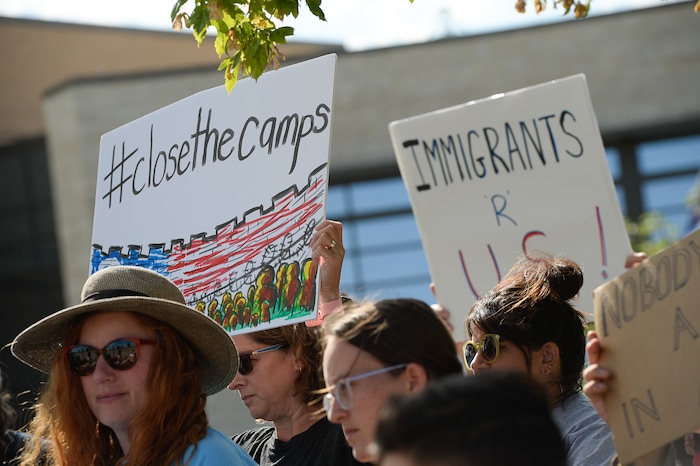 #closeTHecamps
IMMIGRANTS
'R'
US!
NOBODY
A
IN